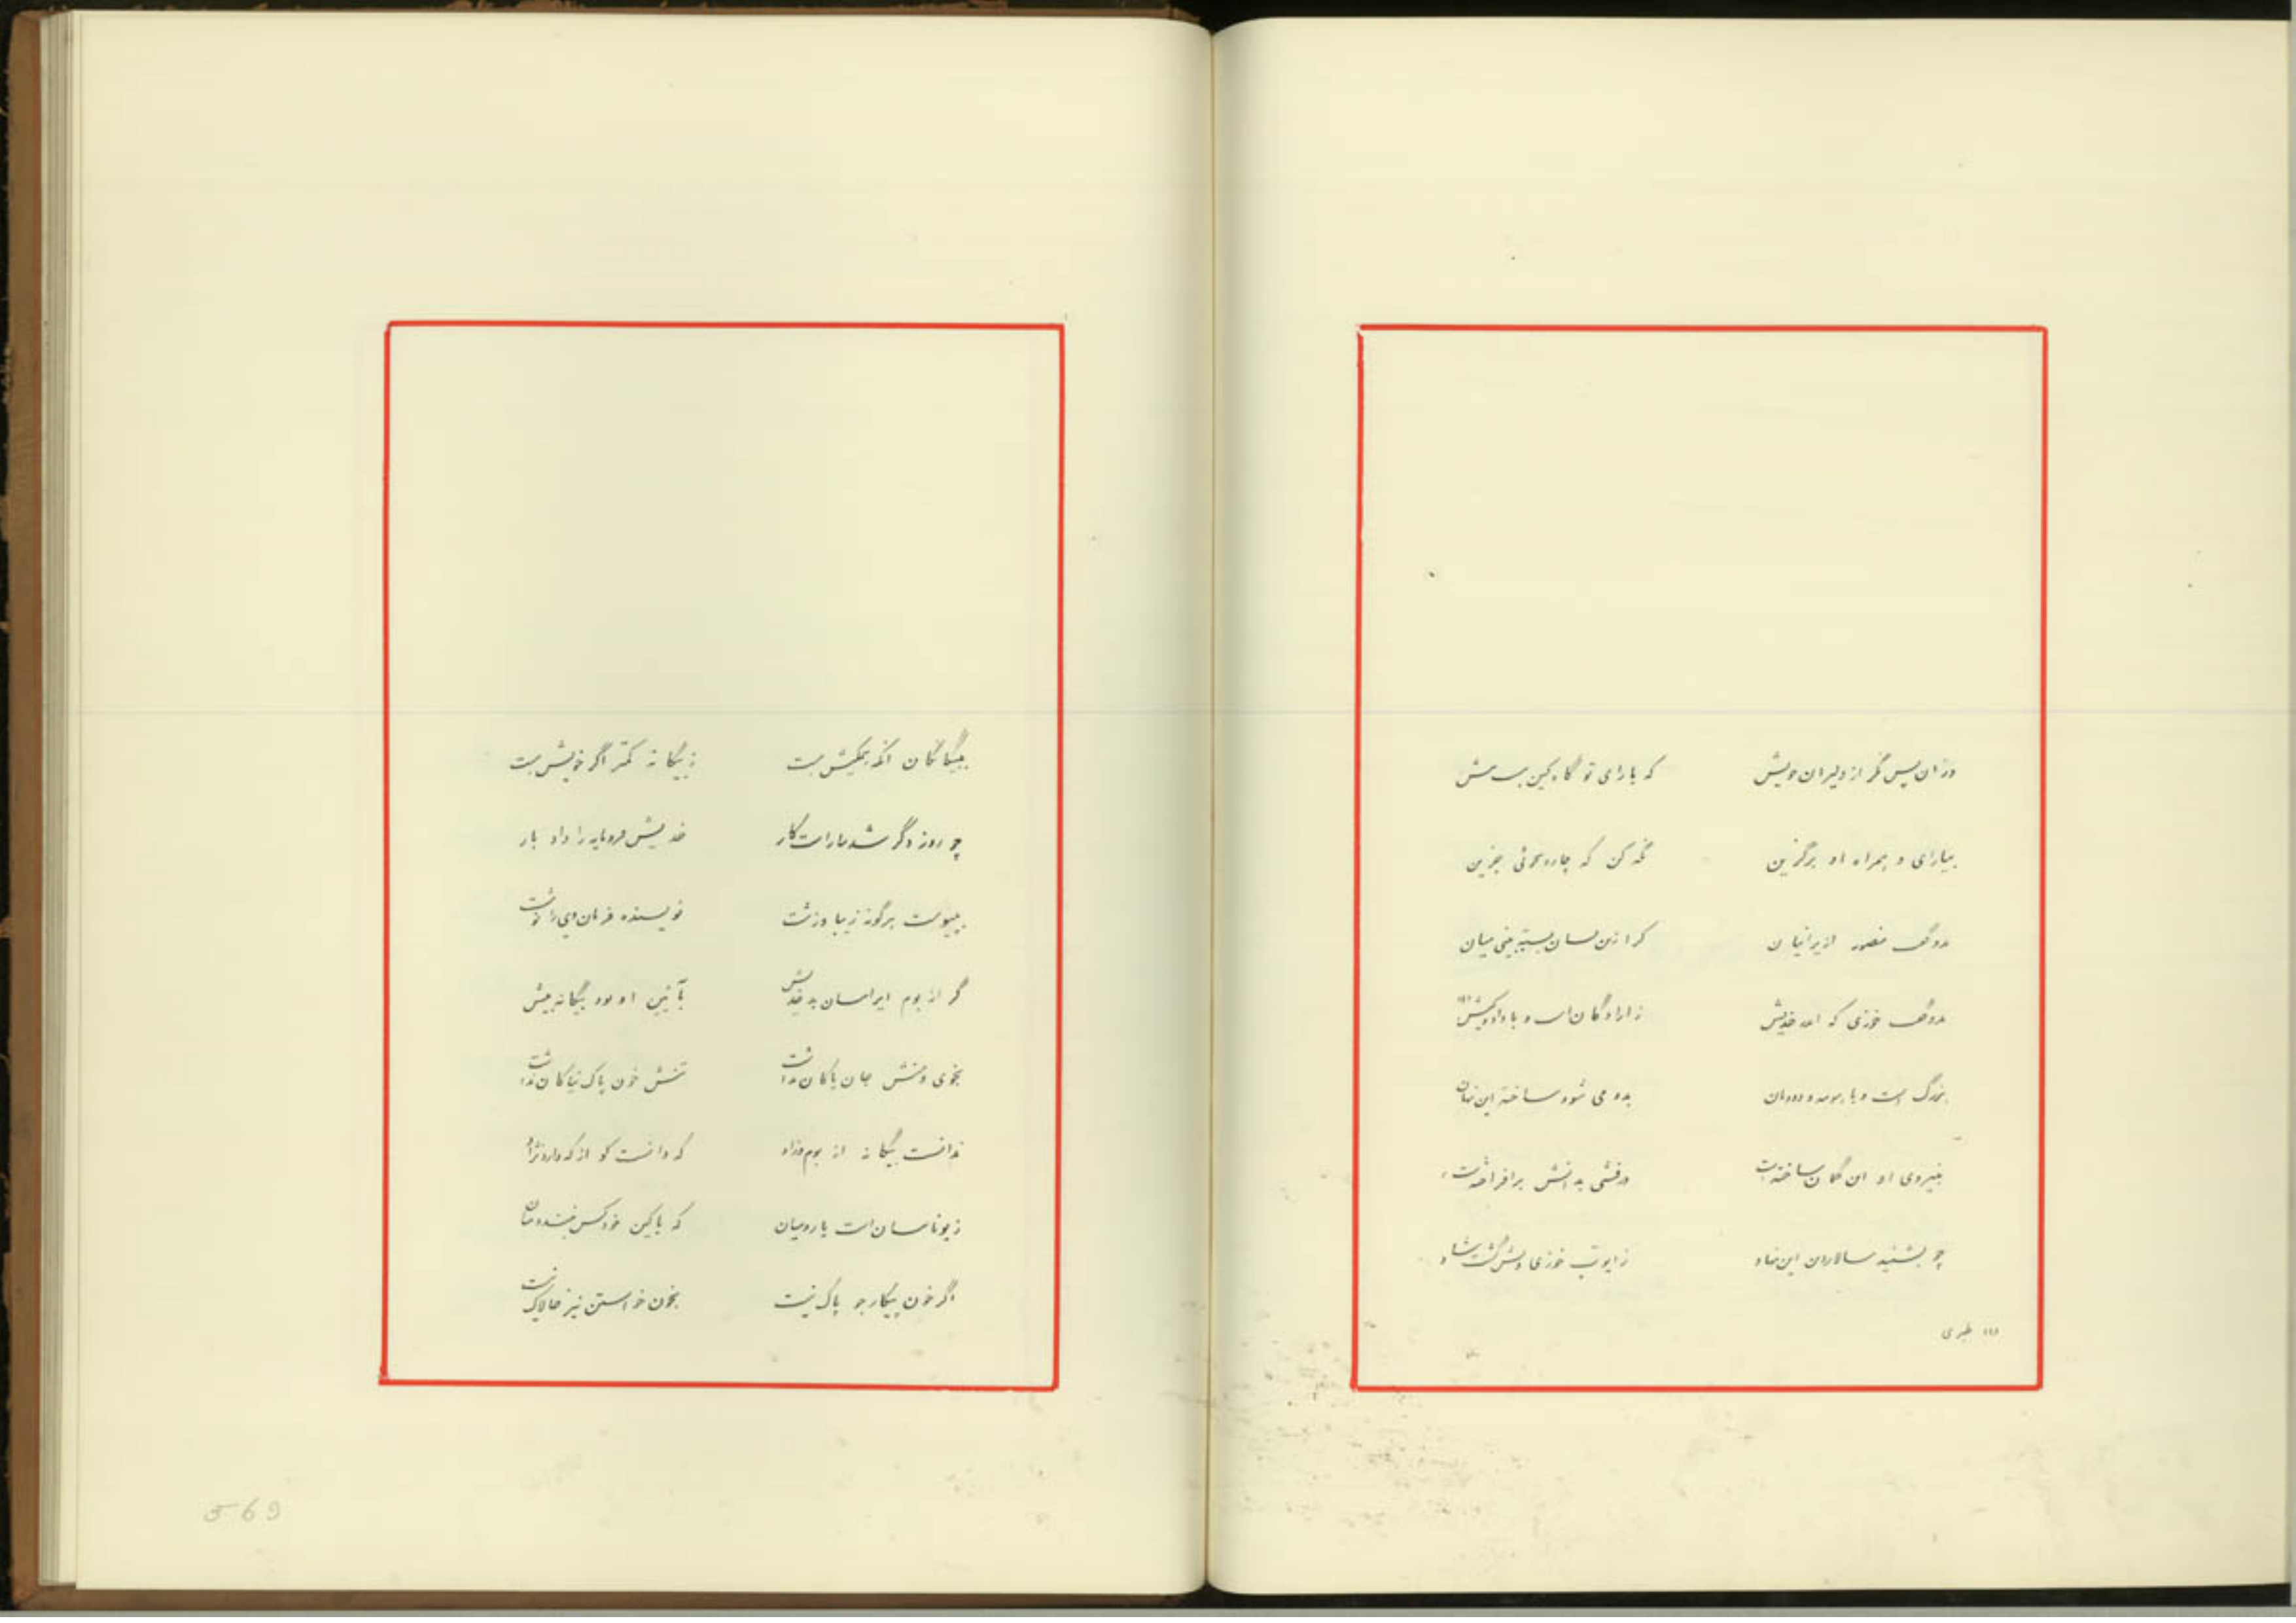 وزان پس نگر از دلیران خویش که با رای تو گاه کین بست
بیارای و همراه او برگزین نگه کن که چاره بجوئی جزین
بدو گفت منصور از ایرانیان کرا زین نسان بسته بینی میان
بدو گفت خوزی که خدیش ز آزادگان است و با داد و کیش
بزرگ است و با بوم و دودمان بدو می شود ساخته این زمان
بنیروی او این گمان ساخته است درفشی بدانش برافراخته است
چو بشنید سالاران این نهاد ز ایوب خوزی دلش گشت شاد
(۱) طبری
ببیگانگان آنکه همکیش است ز بیگانه کمتر اگر خویش است
چو روز دگر شد بیاراست کار خدیش فرومایه را داد بار
بپیوست هر گونه زیبا و زشت نویسنده فرمان وی را نوشت
گر از بوم ایرانسان بد خدیش بآئین او بود بیگانه بیش
بخوی و منش جان پاکان نداشت تنش خون پاک نیاکان نداشت
ندانست بیگانه از بوم و زاد که دانست کو از که دارد نژاد
ز یونانسان است یا رومیان که با کین خود کس نبندد میان
اگر خون پیکارجو پاک نیست بخون خواستن نیز چالاک نیست
569